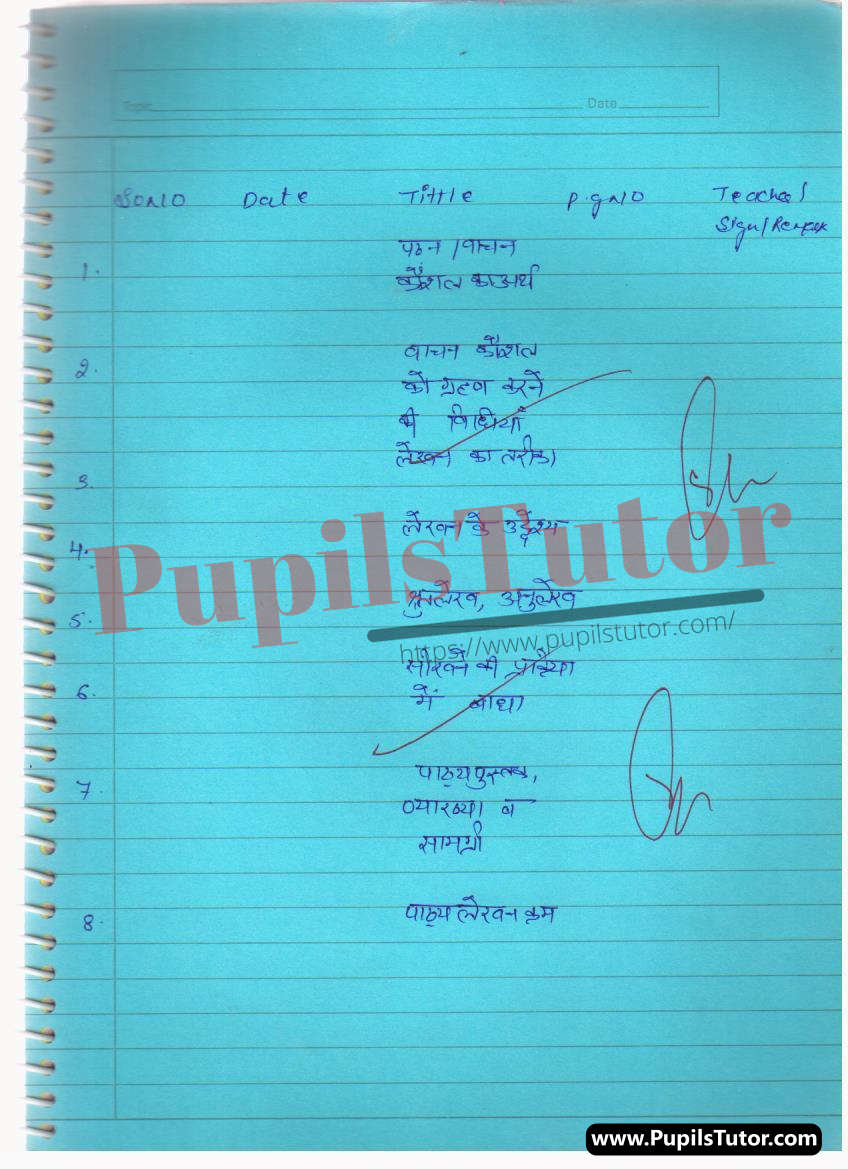 Topic Date
SoNo Date Tittle P.gNo Teacher
Sign/Remark
1. पठन /वाचन
कौशल का अर्थ
2. वाचन कौशल
को ग्रहण करने
की विधियाँ
3. लेखन का तरीका
4. लेखन के उद्देश्य
PupilsTutor
5. श्रुतलेख, अनुलेख
https://www.pupilstutor.com/
6. सीखने की प्रक्रिया
में बाधा
7. पाठ्यपुस्तक,
व्याख्या व
सामग्री
8. पाठ्य लेखन क्रम
www.PupilsTutor.com